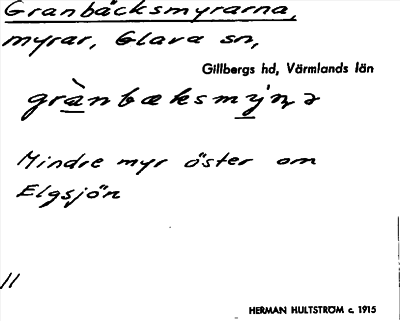 Granbäcksmyrarna,
myrar, Glava sn,
Gillbergs hd, Värmlands län
Mindre myr öster om
Elgsjön
11
HERMAN HULTSTRÖM c. 1915